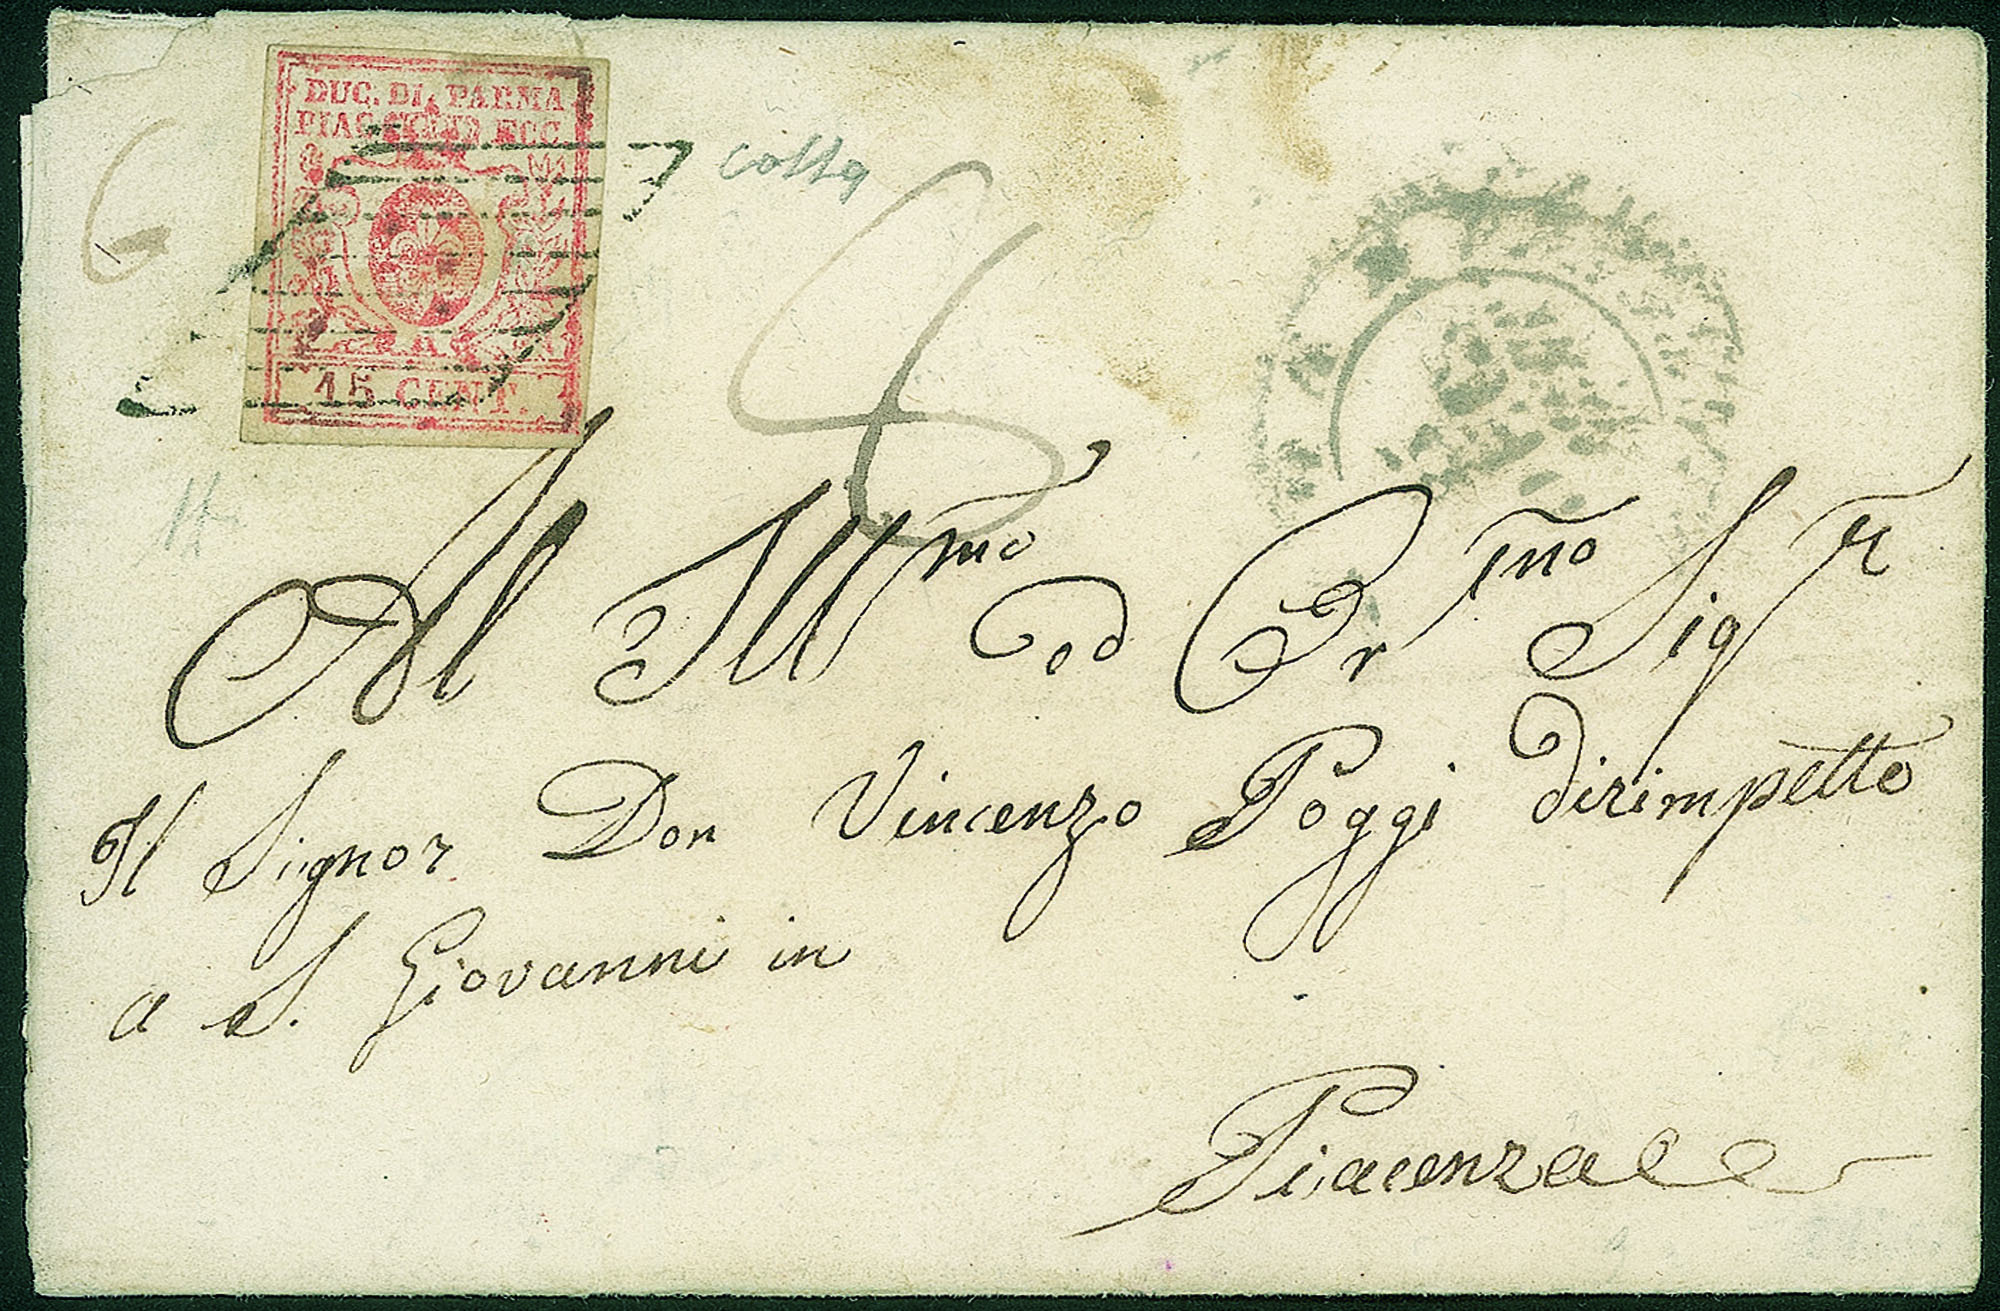 DUC. DI PARMA
PIAC. ECC.
15 CENT.
6
Al Illmo ed Ormo Sigr
Il Signor Don Vincenzo Poggi dirimpetto
a S. Giovanni in
Piacenza